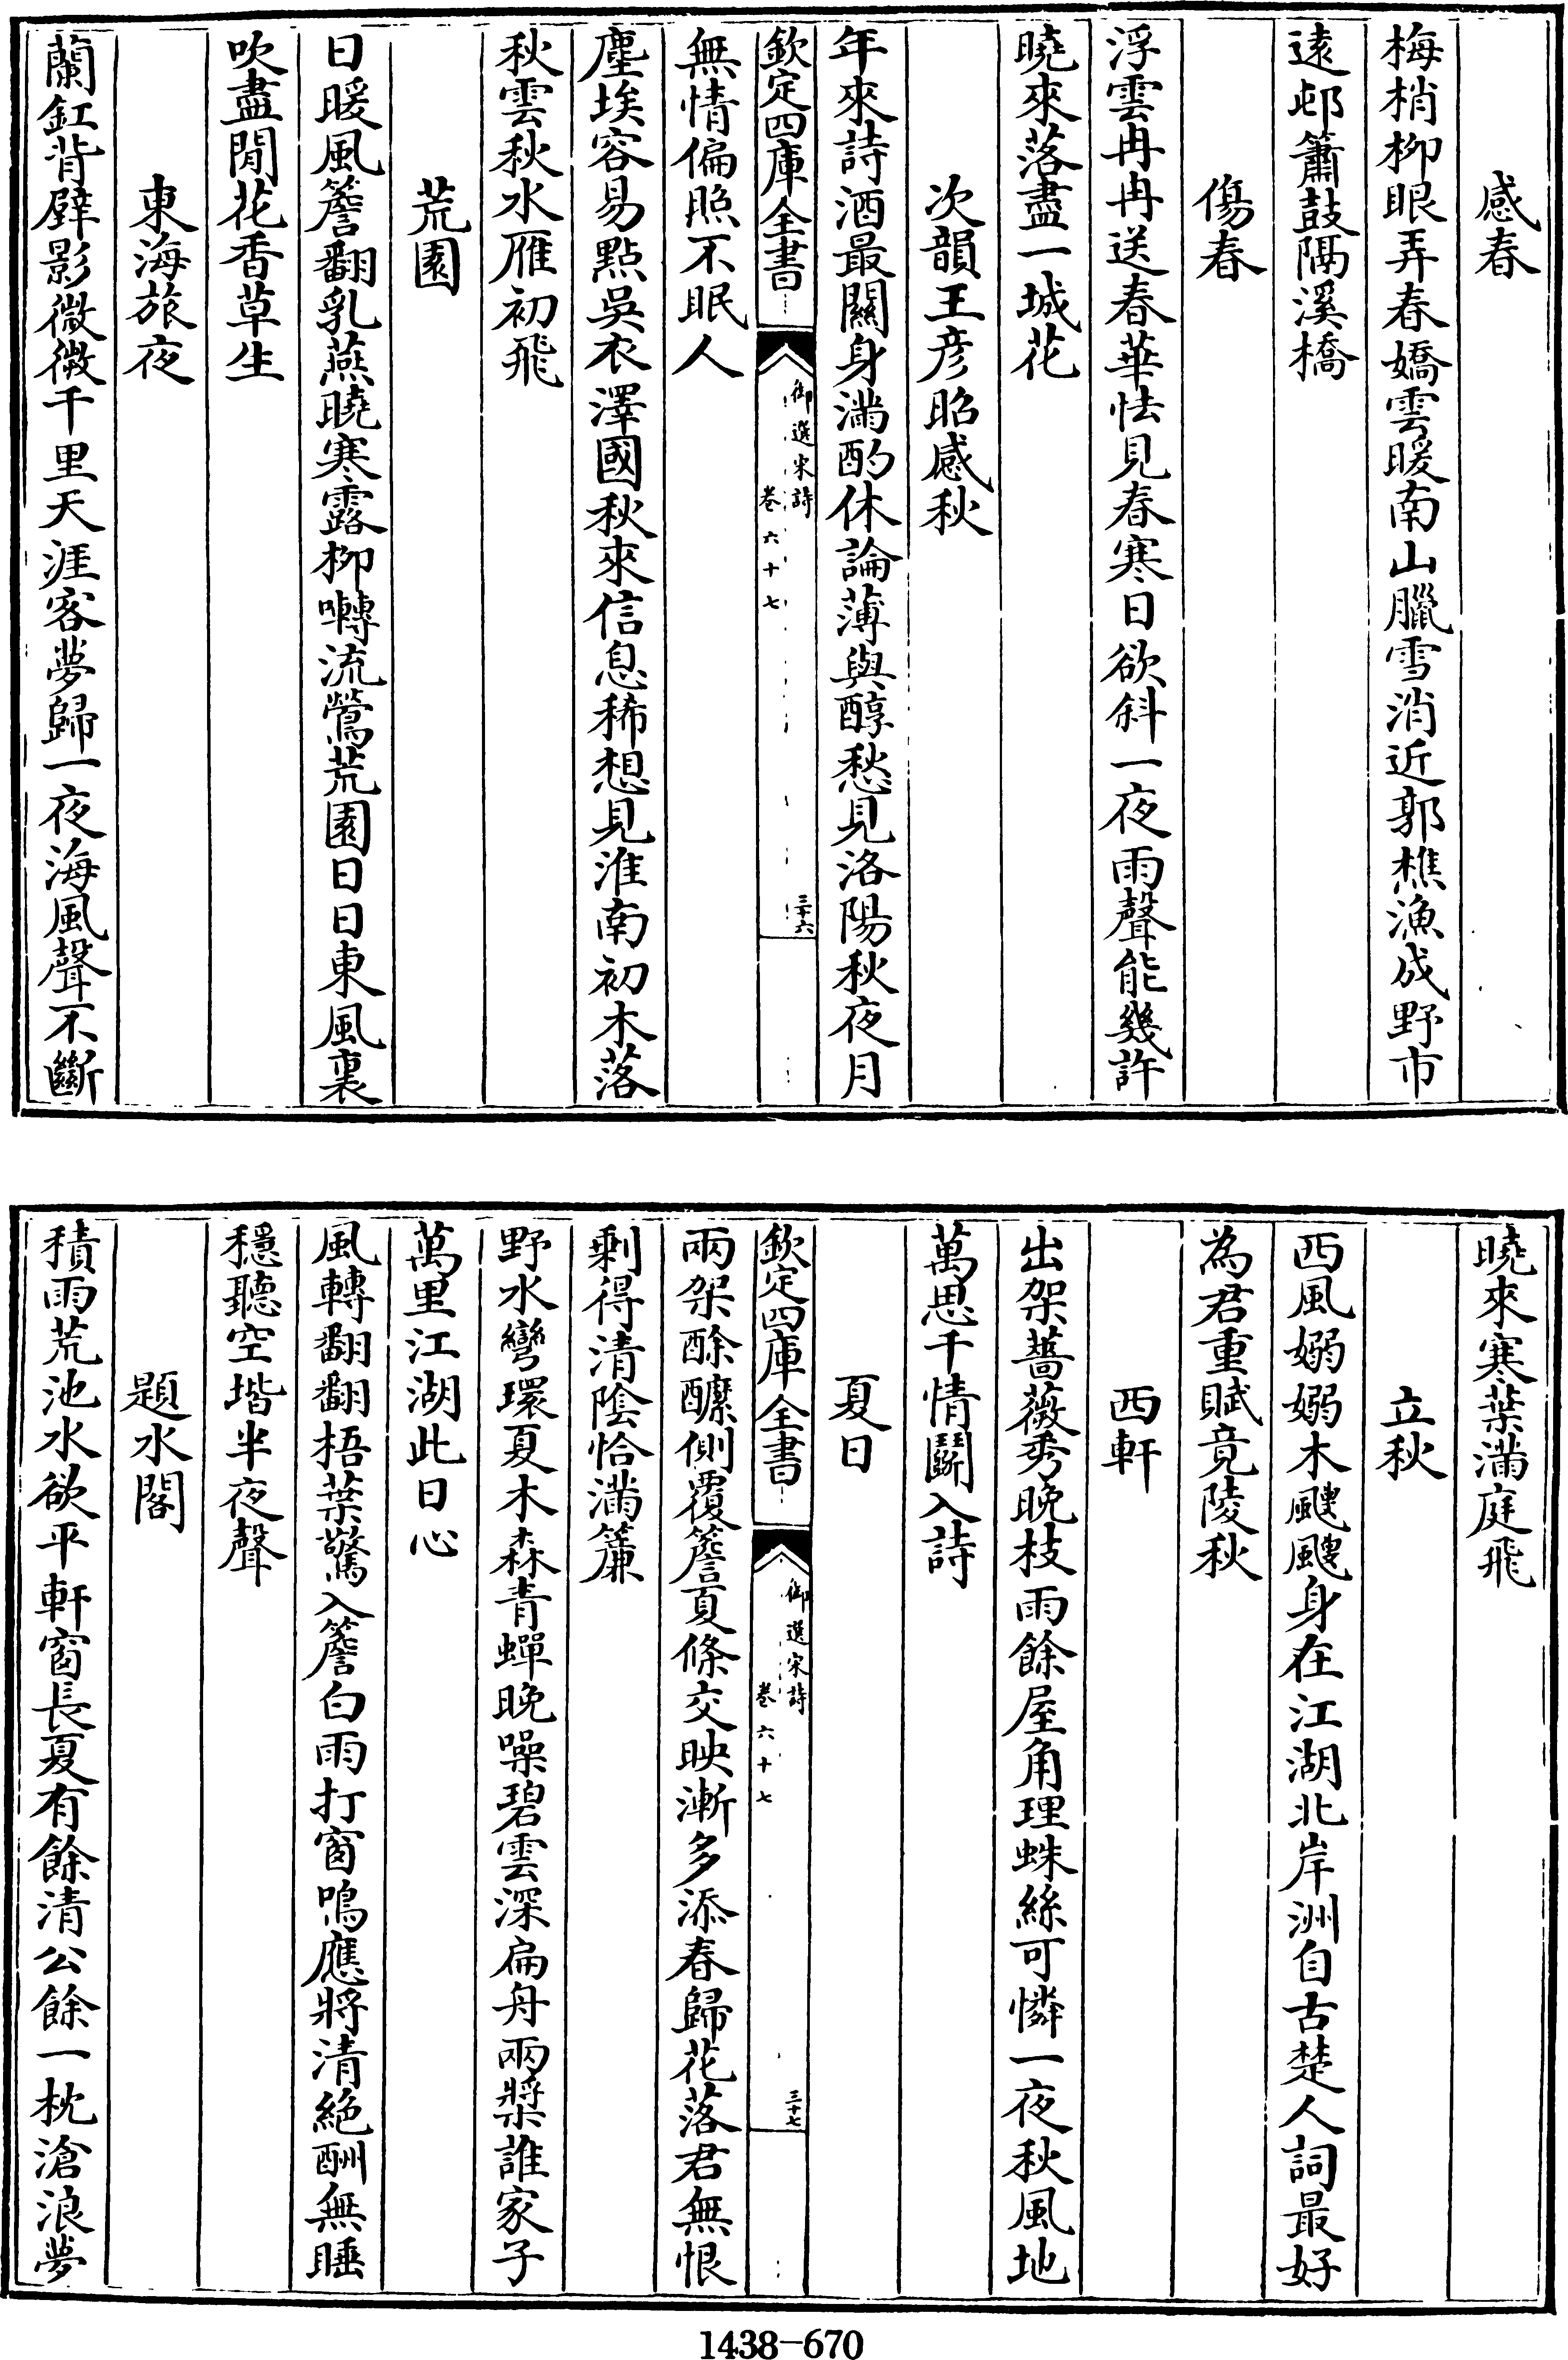 感春
梅梢柳眼弄春嬌雲暖南山臘雪消近郭樵漁成野市
遠邨簫鼓隔溪橋
傷春
浮雲冉冉送春華怯見春寒日欲斜一夜雨聲能幾許
曉來落盡一城花
次韻王彦昭感秋
年來詩酒最關身滿酌休論薄與醇愁見洛陽秋夜月
欽定四庫全書
御選宋詩
卷六十七
三十六
無情偏照不眠人
塵埃容易點吳衣澤國秋來信息稀想見淮南初木落
秋雲秋水雁初飛
荒園
日暖風簷翻乳燕曉寒露柳囀流鶯荒園日日東風裏
吹盡閒花香草生
東海旅夜
蘭釭背壁影微微千里天涯客夢歸一夜海風聲不斷
曉來寒葉滿庭飛
立秋
西風嫋嫋木颼颼身在江湖北岸洲自古楚人詞最好
為君重賦竟陵秋
西軒
出架薔薇秀晚枝雨餘屋角理蛛絲可憐一夜秋風地
萬思千情鬭入詩
夏日
欽定四庫全書
御選宋詩
卷六十七
三十七
兩架酴醾側覆簷夏條交映漸多添春歸花落君無恨
剩得清陰恰滿簾
野水彎環夏木森青蟬晚噪碧雲深扁舟兩槳誰家子
萬里江湖此日心
風轉翻翻梧葉驚入簷白雨打窗鳴應將清絶酬無睡
穩聽空堦半夜聲
題水閣
積雨荒池水欲平軒窗長夏有餘清公餘一枕滄浪夢
1438-670